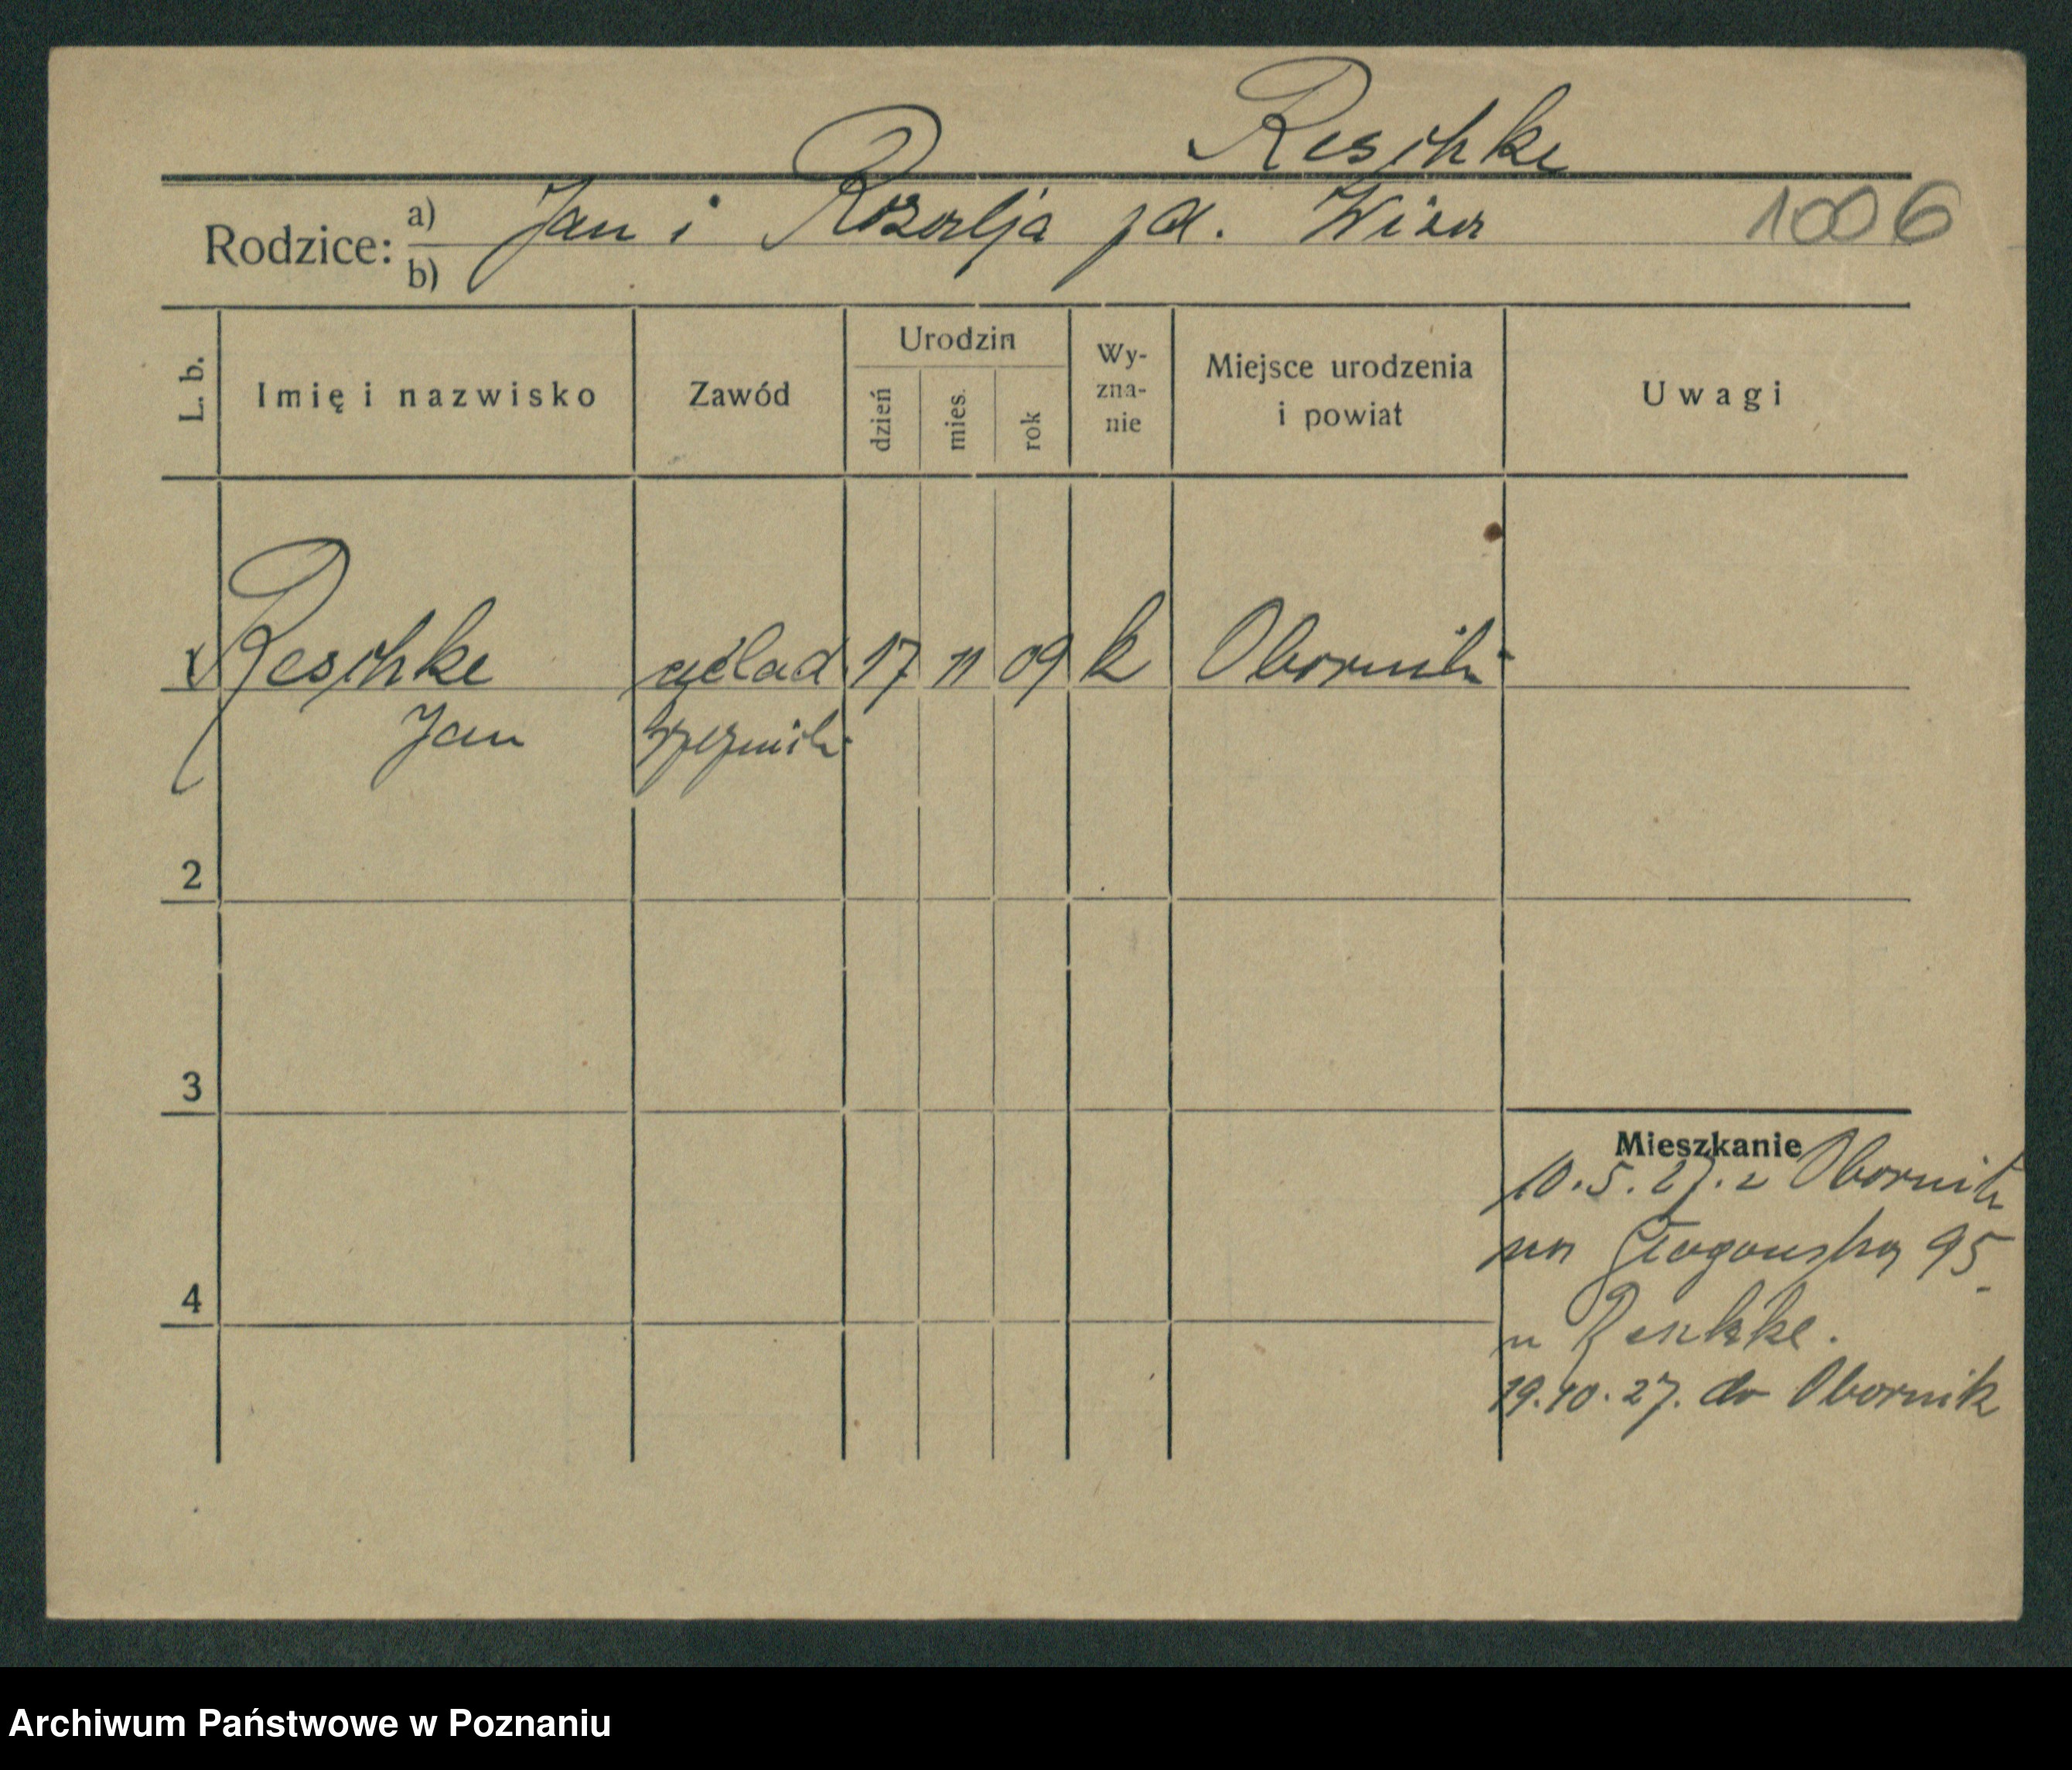 Reschke
Rodzice: a) Jan i Rozalja
b)
1006
L. b.
Imię i nazwisko
Zawód
Urodzin
dzień
mies.
rok
Wy-
zna-
nie
Miejsce urodzenia
i powiat
Uwagi
1 Reschke czelad. 17 11 09 k Oborniki
Jan
2
3
4
Mieszkanie
10.5.27. z Obornik
na Głogowską 95
u Reschke.
19.10.27. do Obornik
Archiwum Państwowe w Poznaniu